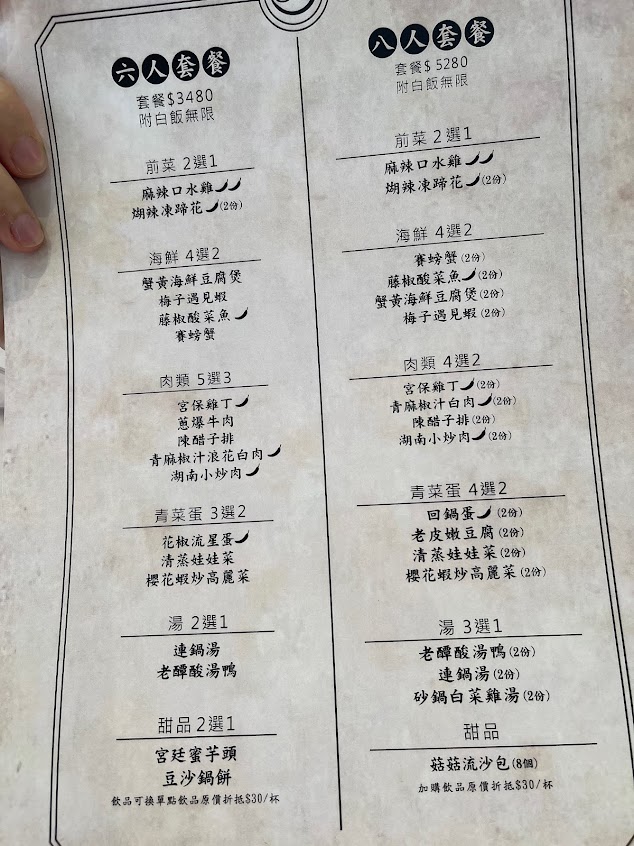 六人套餐
套餐$3480
附白飯無限
前菜 2選1
麻辣口水雞
煳辣凍蹄花(2份)
海鮮 4選2
蟹黃海鮮豆腐煲
梅子遇見蝦
藤椒酸菜魚
賽螃蟹
肉類 5選3
宮保雞丁
蔥爆牛肉
陳醋子排
青麻椒汁浪花白肉
湖南小炒肉
青菜蛋 3選2
花椒流星蛋
清蒸娃娃菜
櫻花蝦炒高麗菜
湯 2選1
連鍋湯
老醰酸湯鴨
甜品 2選1
宮廷蜜芋頭
豆沙鍋餅
飲品可換單點飲品原價折抵$30/杯
八人套餐
套餐$5280
附白飯無限
前菜 2選1
麻辣口水雞
煳辣凍蹄花(2份)
海鮮 4選2
賽螃蟹(2份)
藤椒酸菜魚(2份)
蟹黃海鮮豆腐煲(2份)
梅子遇見蝦(2份)
肉類 4選2
宮保雞丁(2份)
青麻椒汁白肉(2份)
陳醋子排(2份)
湖南小炒肉(2份)
青菜蛋 4選2
回鍋蛋(2份)
老皮嫩豆腐(2份)
清蒸娃娃菜(2份)
櫻花蝦炒高麗菜(2份)
湯 3選1
老醰酸湯鴨(2份)
連鍋湯(2份)
砂鍋白菜雞湯(2份)
甜品
菇菇流沙包(8個)
加購飲品原價折抵$30/杯